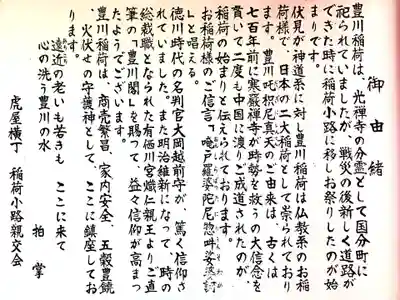 御由緒
豊川稲荷は、光禅寺の分霊として国分町に
祀られていましたが、戦災の後新しく道路が
できた時に稲荷小路に移しお祭りしたのが始
まりです。
伏見が神道系に対し豊川稲荷は仏教系のお
荷様で、日本の二大稲荷として崇られており
ます。豊川吒枳尼真天のご由来は、古くは
七百年前に寒巌禅寺が時勢を救う大信念を
貫いて二度も中国に渡りご成道されたのが、
稲荷の始まりと伝えられております。
お稲荷様のご信言「唵尸羅婆陀尼惣吽娑婆訶
」と唱える。
徳川時代の名判官大岡越前守が、篤く信仰さ
れていました。また明治維新になって、時の
総裁職となられた有栖川宮熾仁親王よりご直
筆の「豊川閣」を賜って、益々信仰が高まっ
たようでございます。
豊川稲荷は、商売繁昌、家内安全、五穀豊饒
、火伏せの守護神として、ここに鎮座してお
ります。
遠近の老いも若きも ここに来て
心の洗う豊川の水
拍掌
虎屋横丁 稲荷小路親交会